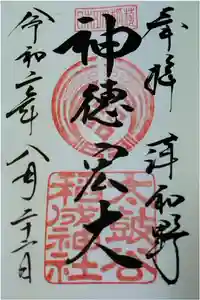 奉拝 津和野
神徳宏大
令和二年八月二十二日
太皷谷
稲成神社